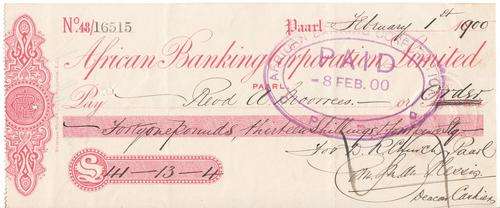 No. 43/16515 Paarl February 1st 1900
African Banking Corporation Limited
PAID
-8 FEB. 00
PAARL
Pay Revd A or Order
Forty one pounds, thirteen shillings
for D. R. Church Paarl
£ 41-13-4
Deacon Cashier